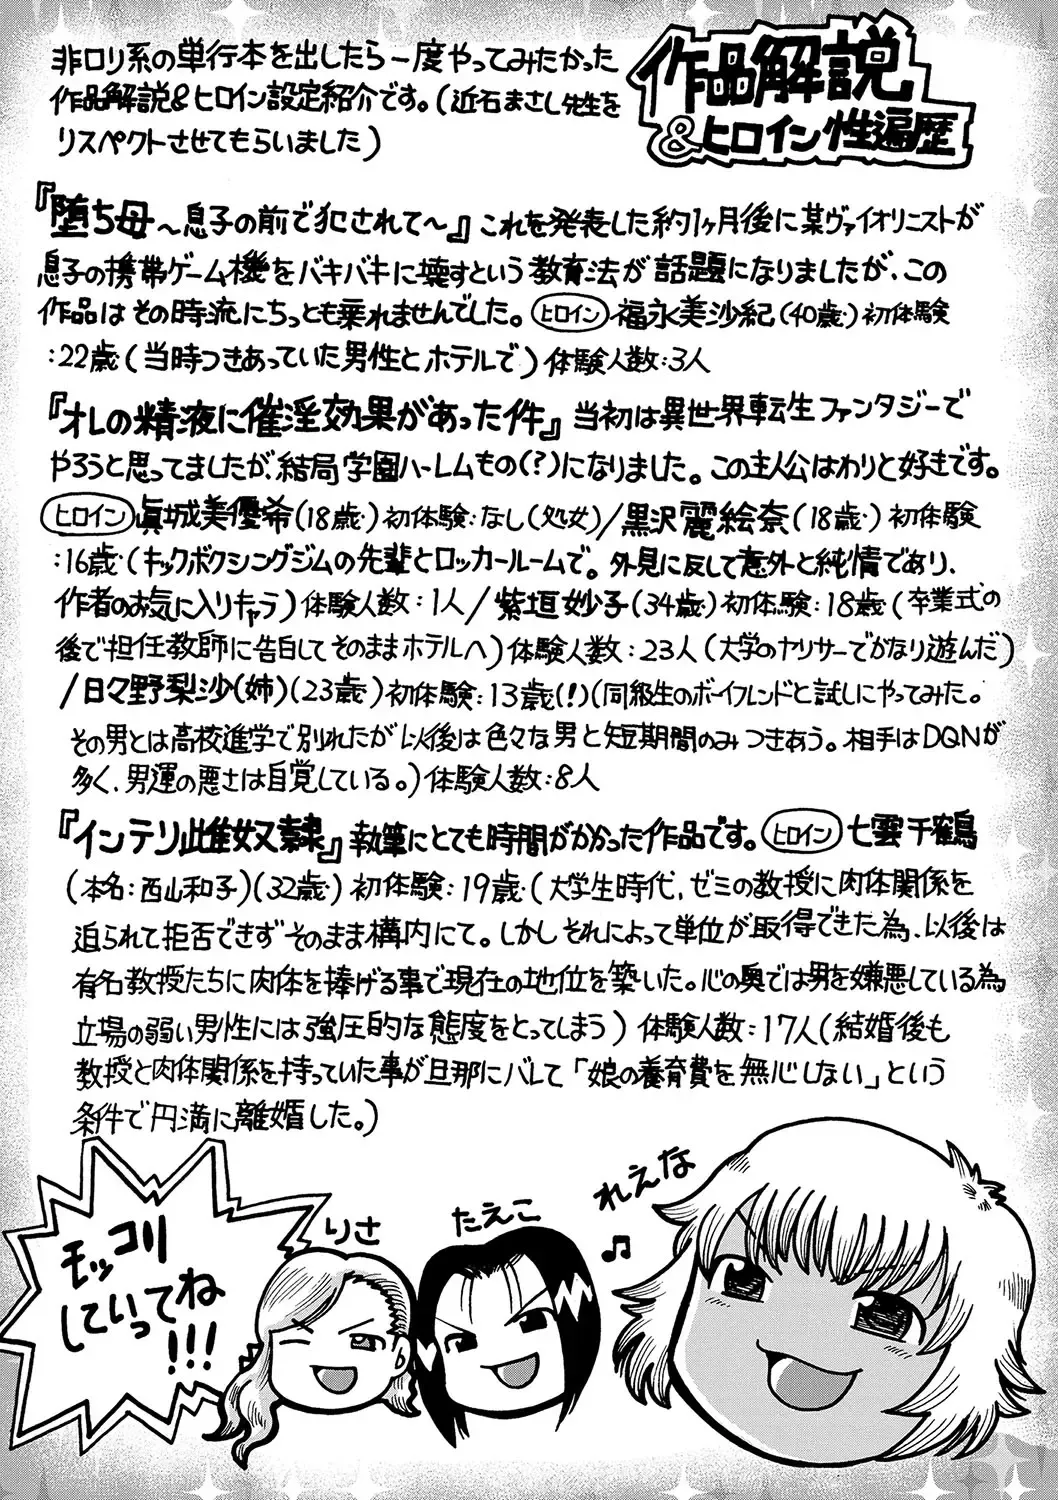 作品解説
&ヒロイン性遍歴
非ロリ系の単行本を出したら一度やってみたかった
作品解説&ヒロイン設定紹介です。(近石まさし先生を
リスペクトさせてもらいました)
『堕ち母~息子の前で犯されて~』これを発表した約1ヶ月後に某ヴァイオリニストが
息子の携帯ゲーム機をバキバキに壊すという教育法が話題になりましたが、この
作品はその時流にちっとも乗れませんでした。ヒロイン福永美沙紀(40歳)初体験
:22歳(当時つきあっていた男性とホテルで)体験人数:3人
『オレの精液に催淫効果があった件』当初は異世界転生ファンタジーで
やろうと思ってましたが、結局学園ハーレムもの(?)になりました。この主人公はわりと好きです。
ヒロイン眞城美優希(18歳)初体験:なし(処女)/黒沢麗絵奈(18歳)初体験
:16歳(キックボクシングジムの先輩とロッカールームで。外見に反して意外と純情であり、
作者のお気に入りキャラ)体験人数:1人/紫垣妙子(34歳)初体験:18歳(卒業式の
後で担任教師に告白してそのままホテルへ)体験人数:23人(大学のヤリサーでかなり遊んだ)
/日々野梨沙(姉)(23歳)初体験:13歳(!)(同級生のボーイフレンドと試しにやってみた。
その男とは高校進学で別れたが以後は色々な男と短期間のみつきあう。相手はDQNが
多く、男運の悪さは自覚している。)体験人数:8人
『インテリ雌奴隷』執筆にとても時間がかかった作品です。ヒロイン七雲千鶴
(本名:西山和子)(32歳)初体験:19歳(大学生時代、ゼミの教授に肉体関係を
迫られて拒否できずそのまま構内にて。しかしそれによって単位が取得できた為、以後は
有名教授たちに肉体を捧げる事で現在の地位を築いた。心の奥では男を嫌悪している為、
立場の弱い男性には強圧的な態度をとってしまう)体験人数:17人(結婚後も
教授と肉体関係を持っていた事が旦那にバレて「娘の養育費を無心しない」という
条件で円満に離婚した。)
モッコリ
していってね
!!!
りさ
たえこ
れえな